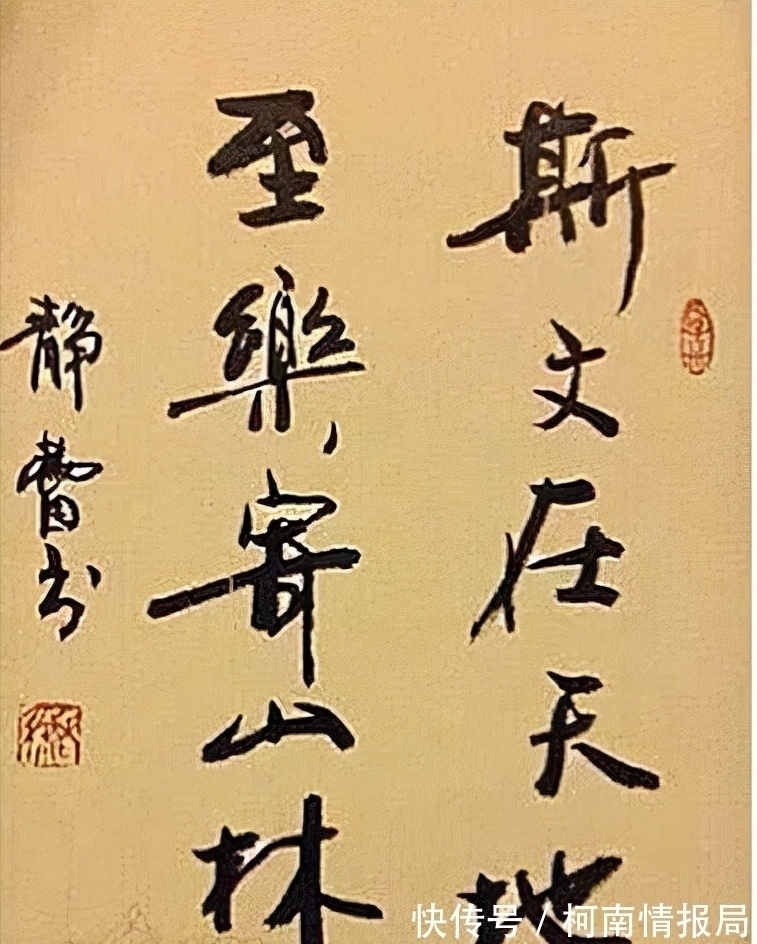 斯文在天地
至樂寄山林
静蕾书
快传号/柯南情报局